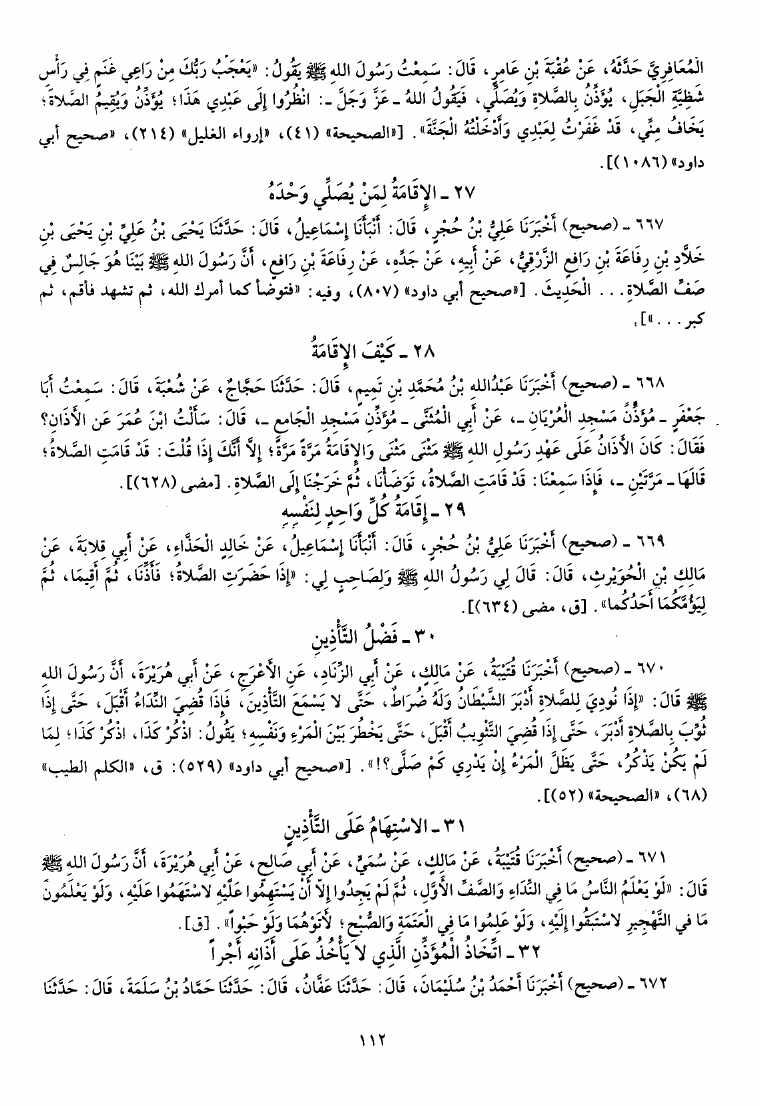 الْمُعَافِرِيَّ حَدَّثَهُ، عَنْ عُقْبَةَ بْنِ عَامِرٍ، قَالَ: سَمِعْتُ رَسُولَ اللهِ ﷺ يَقُولُ: «يَعْجَبُ رَبُّكَ مِنْ رَاعِي غَنَمٍ فِي رَأْسِ
شَظِيَّةِ الْجَبَلِ، يُؤَذِّنُ بِالصَّلاةِ وَيُصَلِّي، فَيَقُولُ اللهُ ـ عَزَّ وَجَلَّ ـ: انْظُرُوا إِلَى عَبْدِي هَذَا؛ يُؤَذِّنُ وَيُقِيمُ الصَّلاةَ؛
يَخَافُ مِنِّي، قَدْ غَفَرْتُ لِعَبْدِي وَأَدْخَلْتُهُ الْجَنَّةَ». [«الصحيحة» (٤١)، «إرواء الغليل» (٢١٤)، «صحيح أبي
داود» (١٠٨٦)].
٢٧ ـ الإِقَامَةُ لِمَنْ يُصَلِّي وَحْدَهُ
٦٦٧ ـ (صحيح) أَخْبَرَنَا عَلِيُّ بْنُ حُجْرٍ، قَالَ: أَنْبَأَنَا إِسْمَاعِيلُ، قَالَ: حَدَّثَنَا يَحْيَى بْنُ عَلِيِّ بْنِ يَحْيَى بْنِ
خَلَّادِ بْنِ رِفَاعَةَ بْنِ رَافِعٍ الزُّرَقِيُّ، عَنْ أَبِيهِ، عَنْ جَدِّهِ، عَنْ رِفَاعَةَ بْنِ رَافِعٍ، أَنَّ رَسُولَ اللهِ ﷺ بَيْنَا هُوَ جَالِسٌ فِي
صَفِّ الصَّلاةِ... الْحَدِيثَ. [«صحيح أبي داود» (٨٠٧)، وفيه: «فتوضأ كما أمرك الله، ثم تشهد فأقم، ثم
كبر...»].
٢٨ ـ كَيْفَ الإِقَامَةُ
٦٦٨ ـ (صحيح) أَخْبَرَنَا عَبْدُاللهِ بْنُ مُحَمَّدِ بْنِ تَمِيمٍ، قَالَ: حَدَّثَنَا حَجَّاجٌ، عَنْ شُعْبَةَ، قَالَ: سَمِعْتُ أَبَا
جَعْفَرٍ ـ مُؤَذِّنُ مَسْجِدِ الْعُرْيَانِ ـ، عَنْ أَبِي الْمُثَنَّى ـ مُؤَذِّنِ مَسْجِدِ الْجَامِعِ ـ، قَالَ: سَأَلْتُ ابْنَ عُمَرَ عَنِ الأَذَانِ؟
فَقَالَ: كَانَ الأَذَانُ عَلَى عَهْدِ رَسُولِ اللهِ ﷺ مَثْنَى مَثْنَى وَالإِقَامَةُ مَرَّةً مَرَّةً؛ إِلَّا أَنَّكَ إِذَا قُلْتَ: قَدْ قَامَتِ الصَّلاةُ؛
قَالَهَا ـ مَرَّتَيْنِ ـ، فَإِذَا سَمِعْنَا: قَدْ قَامَتِ الصَّلاةُ، تَوَضَأْنَا، ثُمَّ خَرَجْنَا إِلَى الصَّلاةِ. [مضى (٦٢٨)].
٢٩ ـ إِقَامَةُ كُلِّ وَاحِدٍ لِنَفْسِهِ
٦٦٩ ـ (صحيح) أَخْبَرَنَا عَلِيُّ بْنُ حُجْرٍ، قَالَ: أَنْبَأَنَا إِسْمَاعِيلُ، عَنْ خَالِدٍ الْحَذَّاءِ، عَنْ أَبِي قِلابَةَ، عَنْ
مَالِكِ بْنِ الْحُوَيْرِثِ، قَالَ: قَالَ لِي رَسُولُ اللهِ ﷺ وَلِصَاحِبٍ لِي: «إِذَا حَضَرَتِ الصَّلاةُ؛ فَأَذِّنَا، ثُمَّ أَقِيمَا، ثُمَّ
لِيَؤُمَّكُمَا أَحَدُكُمَا». [ق، مضى (٦٣٤)].
٣٠ ـ فَضْلُ التَّأْذِينِ
٦٧٠ ـ (صحيح) أَخْبَرَنَا قُتَيْبَةُ، عَنْ مَالِكٍ، عَنْ أَبِي الزِّنَادِ، عَنِ الأَعْرَجِ، عَنْ أَبِي هُرَيْرَةَ، أَنَّ رَسُولَ اللهِ
ﷺ قَالَ: «إِذَا نُودِيَ لِلصَّلاةِ أَدْبَرَ الشَّيْطَانُ وَلَهُ ضُرَاطٌ، حَتَّى لا يَسْمَعَ التَّأْذِينَ، فَإِذَا قُضِيَ النِّدَاءُ أَقْبَلَ، حَتَّى إِذَا
ثُوِّبَ بِالصَّلاةِ أَدْبَرَ، حَتَّى إِذَا قُضِيَ التَّثْوِيبُ أَقْبَلَ، حَتَّى يَخْطُرَ بَيْنَ الْمَرْءِ وَنَفْسِهِ؛ يَقُولُ: اذْكُرْ كَذَا، اذْكُرْ كَذَا؛ لِمَا
لَمْ يَكُنْ يَذْكُرُ، حَتَّى يَظَلَّ الْمَرْءُ إِنْ يَدْرِي كَمْ صَلَّى؟!». [«صحيح أبي داود» (٥٢٩): ق، «الكلم الطيب»
(٦٨)، «الصحيحة» (٥٢)].
٣١ ـ الاسْتِهَامُ عَلَى التَّأْذِينِ
٦٧١ ـ (صحيح) أَخْبَرَنَا قُتَيْبَةُ، عَنْ مَالِكٍ، عَنْ سُمَيٍّ، عَنْ أَبِي صَالِحٍ، عَنْ أَبِي هُرَيْرَةَ، أَنَّ رَسُولَ اللهِ ﷺ
قَالَ: «لَوْ يَعْلَمُ النَّاسُ مَا فِي النِّدَاءِ وَالصَّفِّ الأَوَّلِ، ثُمَّ لَمْ يَجِدُوا إِلَّا أَنْ يَسْتَهِمُوا عَلَيْهِ لاسْتَهَمُوا عَلَيْهِ، وَلَوْ يَعْلَمُونَ
مَا فِي التَّهْجِيرِ لاسْتَبَقُوا إِلَيْهِ، وَلَوْ عَلِمُوا مَا فِي الْعَتَمَةِ وَالصُّبْحِ؛ لأَتَوْهُمَا وَلَوْ حَبْواً». [ق].
٣٢ ـ اتِّخَاذُ الْمُؤَذِّنِ الَّذِي لا يَأْخُذُ عَلَى أَذَانِهِ أَجْراً
٦٧٢ ـ (صحيح) أَخْبَرَنَا أَحْمَدُ بْنُ سُلَيْمَانَ، قَالَ: حَدَّثَنَا عَفَّانُ، قَالَ: حَدَّثَنَا حَمَّادُ بْنُ سَلَمَةَ، قَالَ: حَدَّثَنَا
١١٢